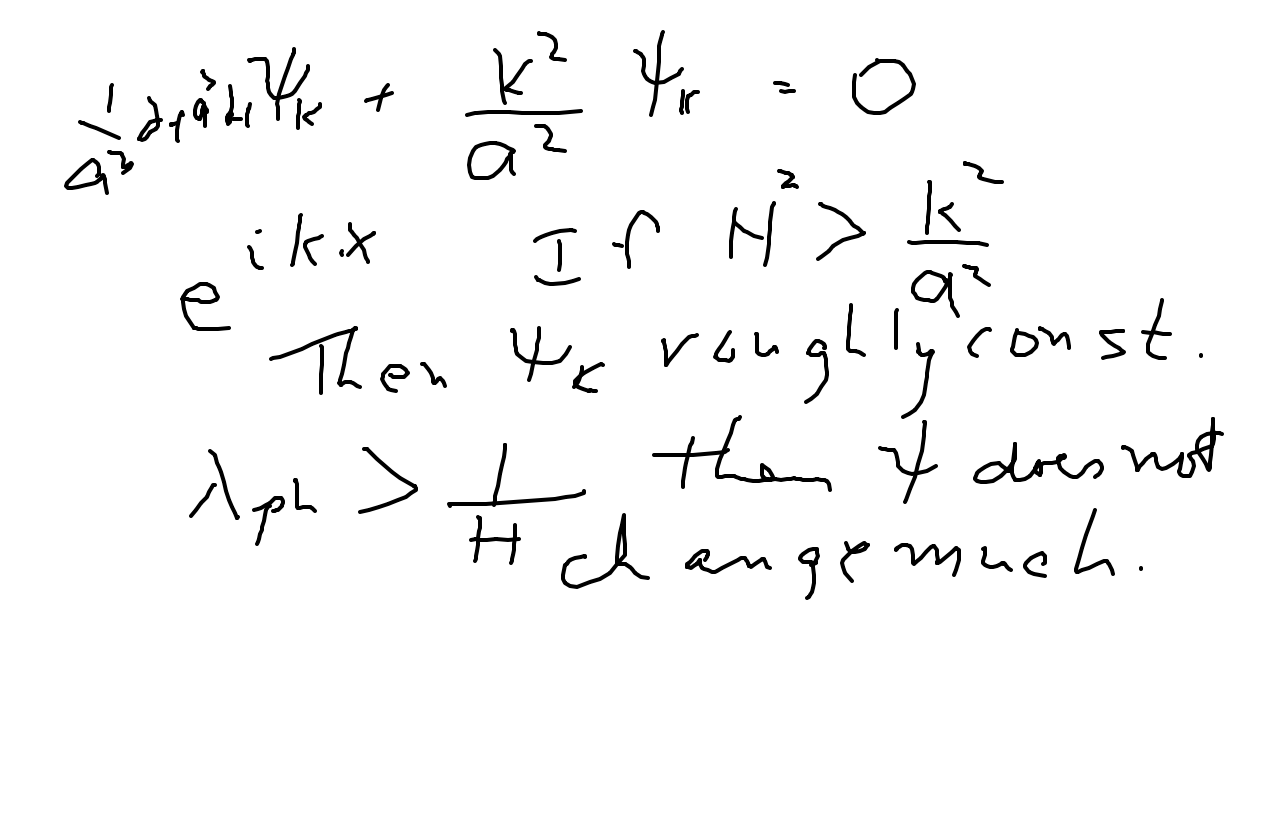 1/a³ ∂ₜ a³ ∂ₜ Ψₖ + k²/a² Ψₖ = 0
e^{ikx} If H² > k²/a²
Then Ψₖ roughly const.
λ_ph > 1/H then Ψ does not
change much.